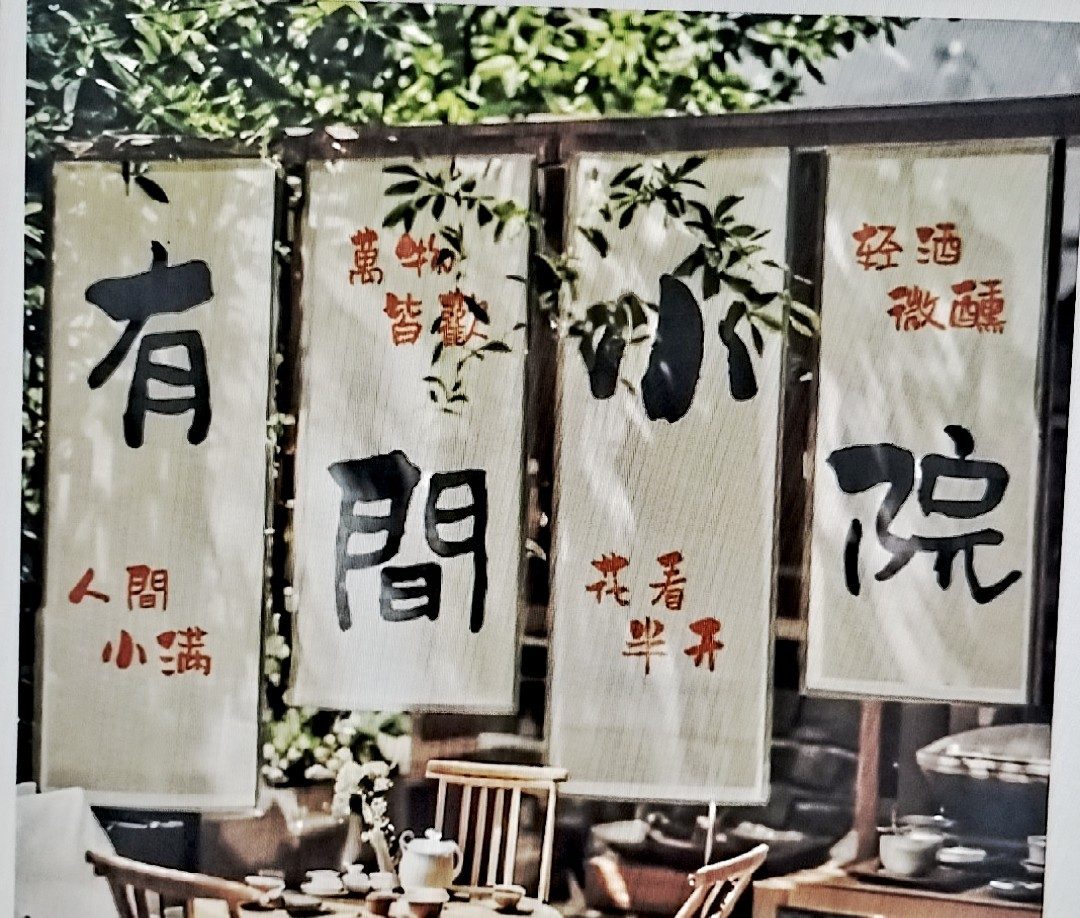 有
人間
小满
萬物
皆歡
間
小
花看
半开
轻酒
微醺
院